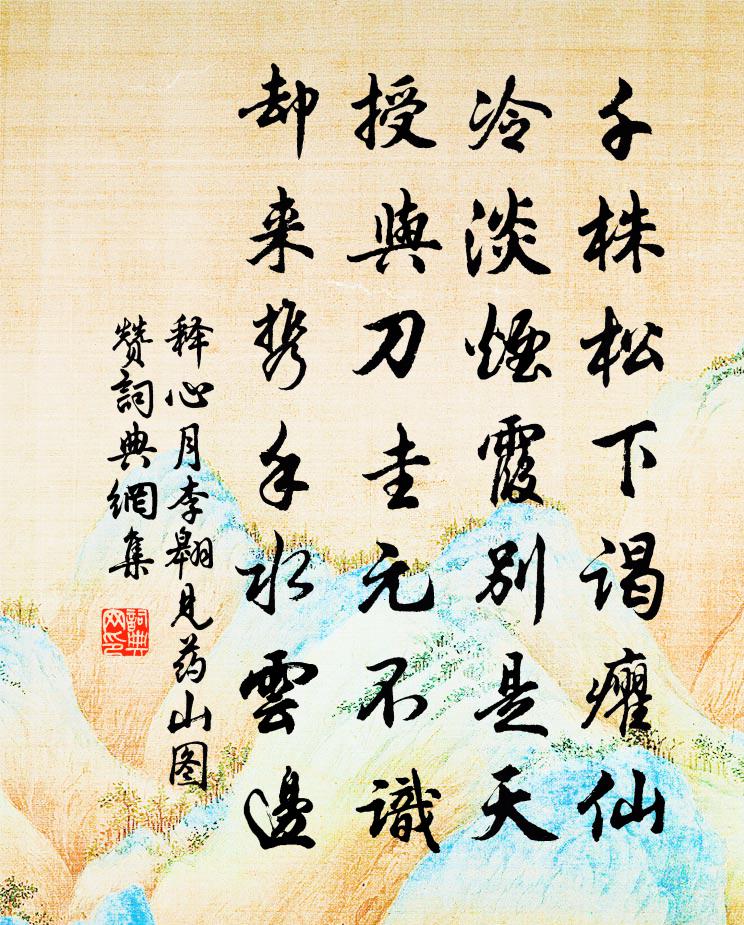 千株松下谒癯仙
冷淡煙霞别是天
授與刀圭元不識
却来携手水雲邊
释心月李翱见药山图
赞詞典網集
詞典
网印